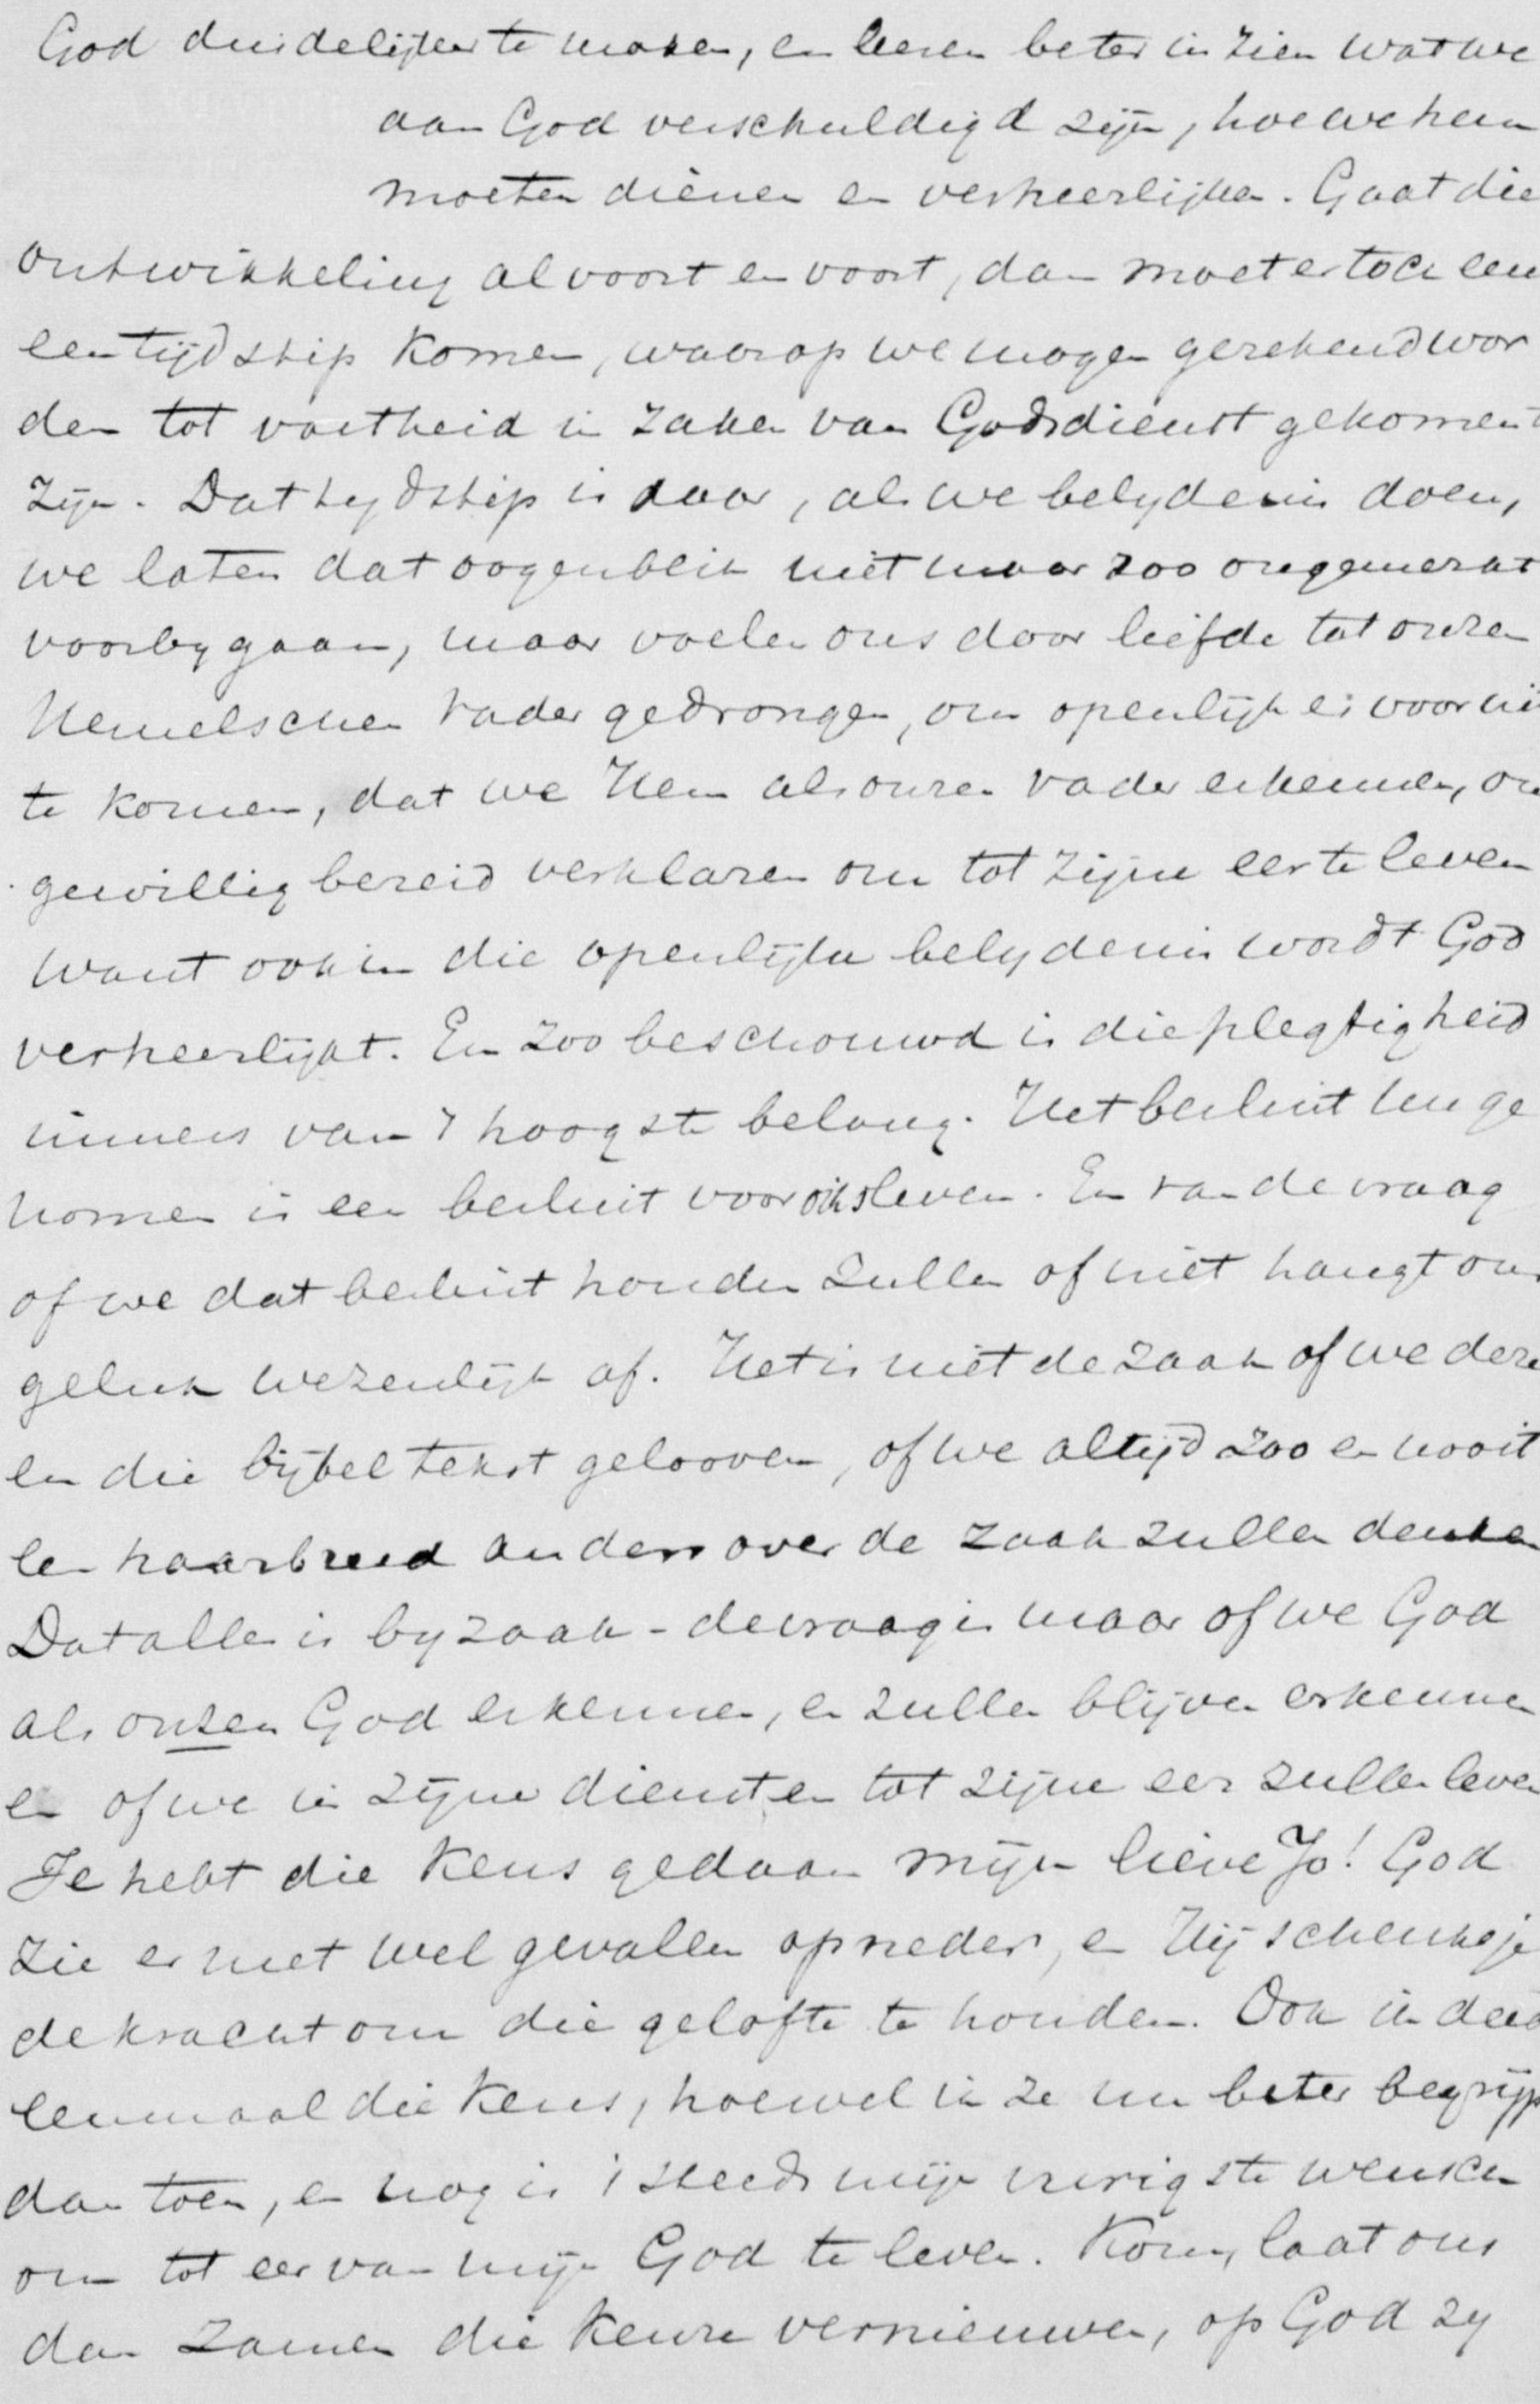 God duidelijker te maken, en leeren beter in zien wat we
aan God verschuldigd zijn, hoe we hem
moeten dienen en verheerlijken. Gaat die
ontwikkeling al voort en voort, dan moet er toch een
een tijdstip komen, waarop we mogen gerekend wor
den tot vastheid in zaken van Godsdienst gekomen te
zijn. Dat tydstip is daar, als we belydenis doen,
we laten dat oogenblik niet maar zoo ongemerkt
voorby gaan, maar voelen ons door liefde tot onzen
Hemelschen Vader gedrongen, om openlijk er voor uit
te komen, dat we Hem als onzen Vader erkennen, ons
gewillig bereid verklaren om tot Zijne eer te leven
want ook in die openlijke belydenis wordt God
verheerlijkt. En zoo beschouwd is die plegtigheid
immers van 't hoogste belang. Het besluit nu ge
nomen is een besluit voor ons leven. En van de vraag
of we dat besluit houden zullen of niet hangt ons
geluk wezenlijk af. Het is niet de zaak of we deze
en die bijbeltekst gelooven, of we altijd zoo en nooit
een haarbreed anders over de zaak zullen denken
Dat alles is byzaak - de vraag is maar of we God
als onzen God erkennen, en zullen blijven erkennen
en of we in Zijne dienst en tot Zijne eer zullen leven
Je hebt die keus gedaan mijn lieve Jo! God
zie er met welgevallen op neder, en Hij schenke je
de kracht om die gelofte te houden. Ook ik deed
eenmaal die keus, hoewel ik ze nu beter begrijp
dan toen, en nog is 't steeds mijn vurigste wensch
om tot eer van mijn God te leven. Kom, laat ons
dan zamen die keuze vernieuwen, op God zy